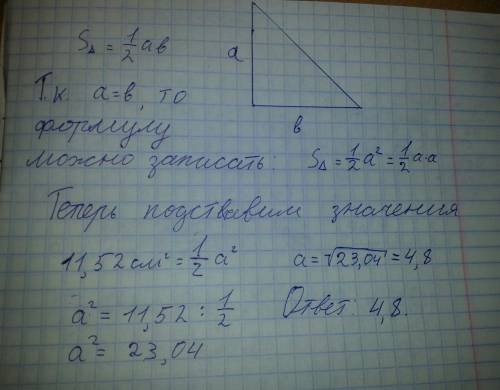 S△ = 1/2 ав
а
Т.к. а=в, то
в
формулу
можно записать: S△ = 1/2 а² = 1/2 а·а
Теперь подставим значения
11,52 см² = 1/2 а²
а = √23,04 = 4,8
а² = 11,52 : 1/2
Ответ: 4,8.
а² = 23,04